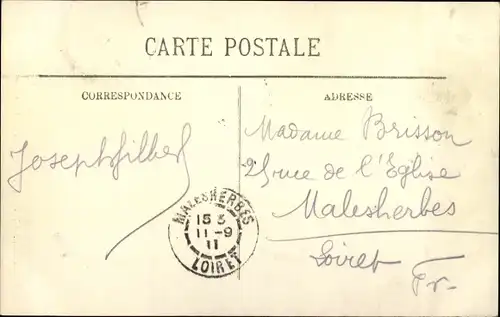 CARTE POSTALE
CORRESPONDANCE
ADRESSE
Joseph Gilbert
Madame Brisson
25 rue de l'Eglise
Malesherbes
Loiret
Fr-
MALESHERBES
15 3
11-9
11
LOIRET